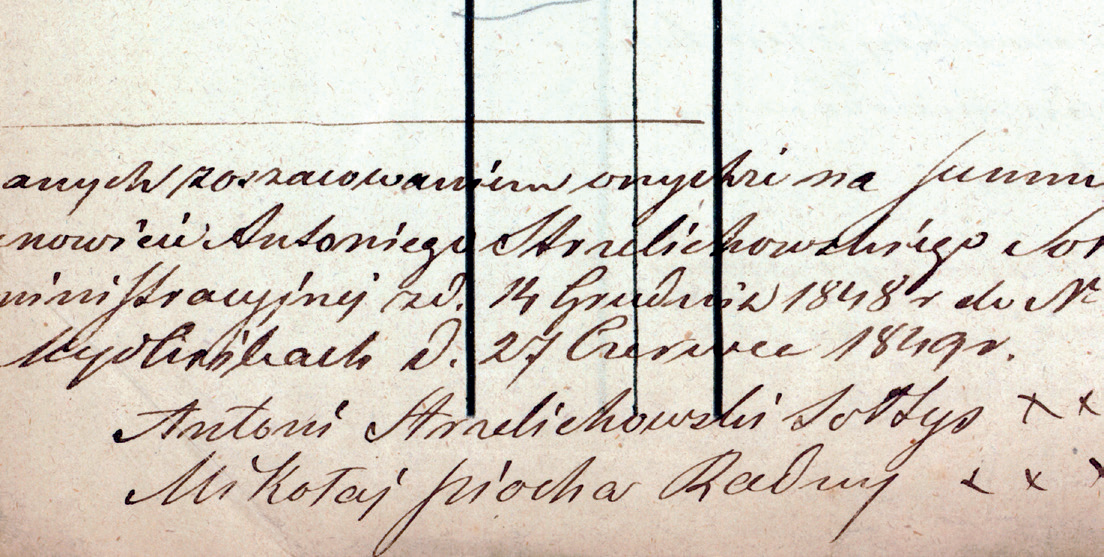 anych zoszacowaniem onychże na Summ
nowicie Antoniego Strzelichowskiego Soł
ministracyjnej z d. 14 Grudnia 1848 r do Nr
Mydlnikach d. 27 Czerwca 1849 r.
Antoni Strzelichowski Sołtys x x
Mikołaj piocha Radny x x x